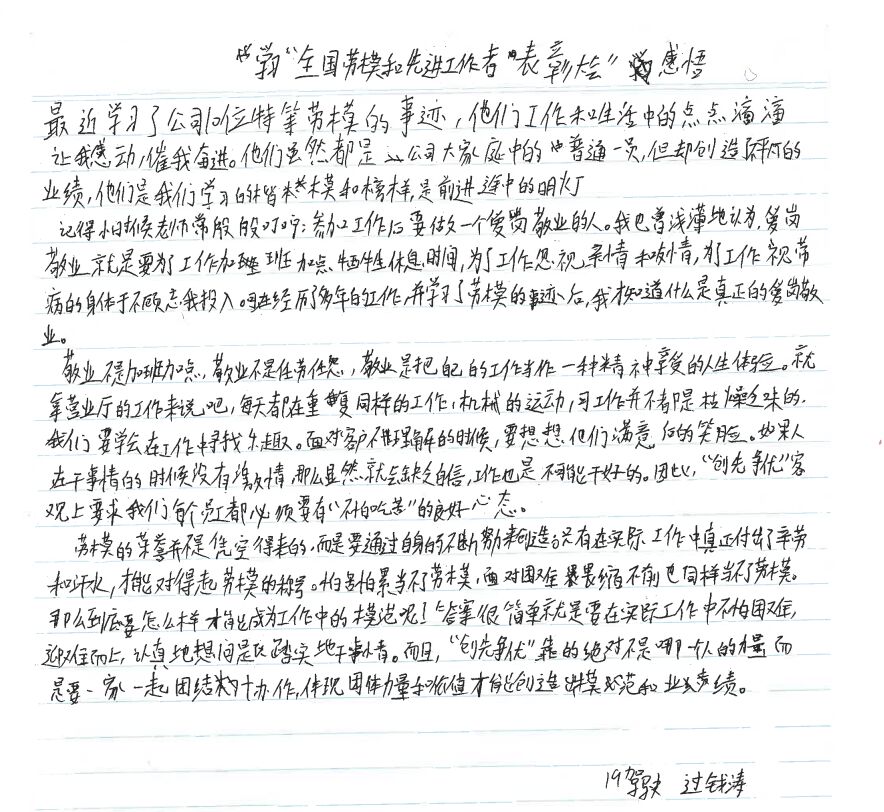 "学习"全国劳模和先进工作者"表彰大会"感悟
最近学习了公司10位特等劳模的事迹,他们工作和生活中的点点滴滴
让我感动,催我奋进。他们虽然都是公司大家庭中的普通一员,但却创造了不平凡的
业绩,他们是我们学习的楷模和榜样,是前进途中的明灯
记得小时候老师常殷殷叮咛:参加工作后要做一个爱岗敬业的人。我也曾浅薄地认为,爱岗
敬业就是要为了工作加班加点牺牲休息时间,为了工作忽视亲情和友情,为了工作视带
病的身体于不顾忘我投入。在经历了多年的工作,并学习了劳模的事迹后,我才知道什么是真正的爱岗敬
业。
敬业不是加班加点,敬业不是任劳任怨,敬业是把自己的工作当作一种精神享受的人生体验。就
拿营业厅的工作来说吧,每天都在重复同样的工作,机械的运动,可工作并不都是枯燥乏味的.
我们要学会在工作中寻找乐趣。面对客户不理解的时候,要想想他们满意后的笑脸。如果人
在干事情的时候没有激情,那么显然就会缺乏自信,工作也是不可能干好的。因此,"创先争优"客
观上要求我们每个员工都必须要有"不怕吃苦"的良好心态。
劳模的荣誉并不是凭空得来的,而是要通过自身的不断努力来创造。只有在实际工作中真正付出了辛劳
和汗水,才能对得起劳模的称号。怕苦怕累当不了劳模,面对困难畏缩不前也同样当不了劳模。
那么到底要怎么样才能成为工作中的模范呢!答案很简单就是要在实际工作中不怕困难,
迎难而上,认真地想问题踏实地干事情。而且,"创先争优"靠的绝对不是哪个人的力量而
是要一家一起团结协作,体现团体力量和价值才能创造出模范和业绩。
19驾驶 过钱涛